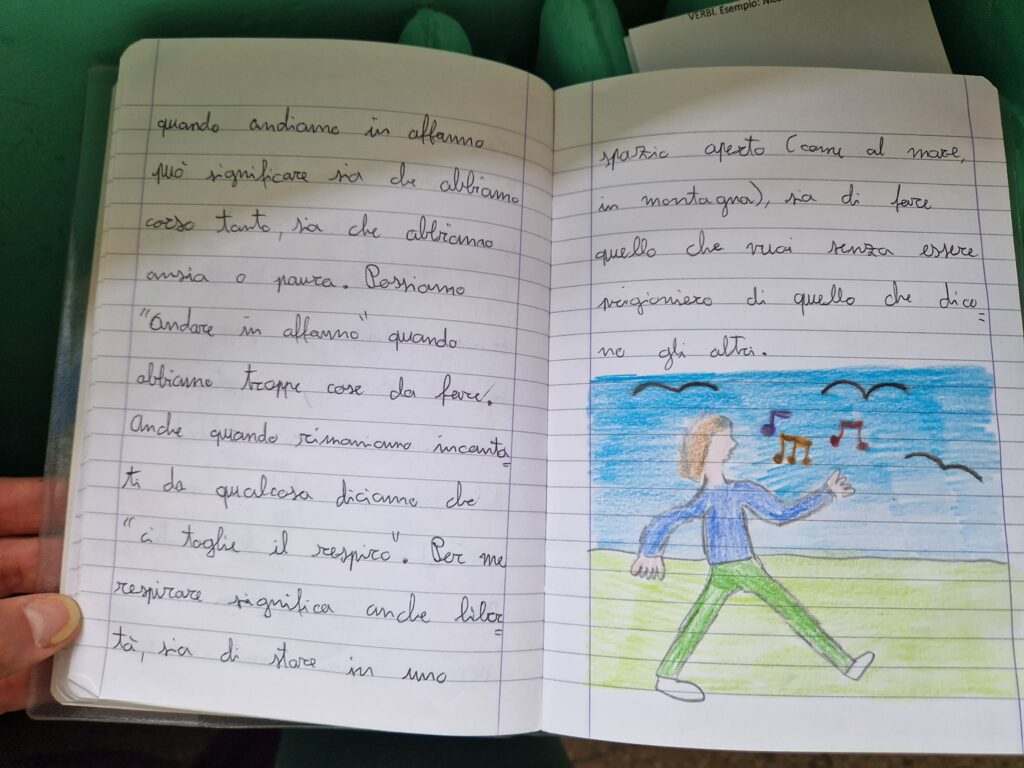 VERBI. Esempio: Nic
quando andiamo in affanno
può significare sia che abbiamo
corso tanto, sia che abbiamo
ansia o paura. Possiamo
"Andare in affanno" quando
abbiamo troppe cose da fare.
Anche quando rimaniamo incanta=
ti da qualcosa diciamo che
"ci toglie il respiro". Per me
respirare significa anche liber=
tà, sia di stare in uno
spazio aperto (come al mare,
in montagna), sia di fare
quello che vuoi senza essere
prigioniero di quello che dico=
no gli altri.